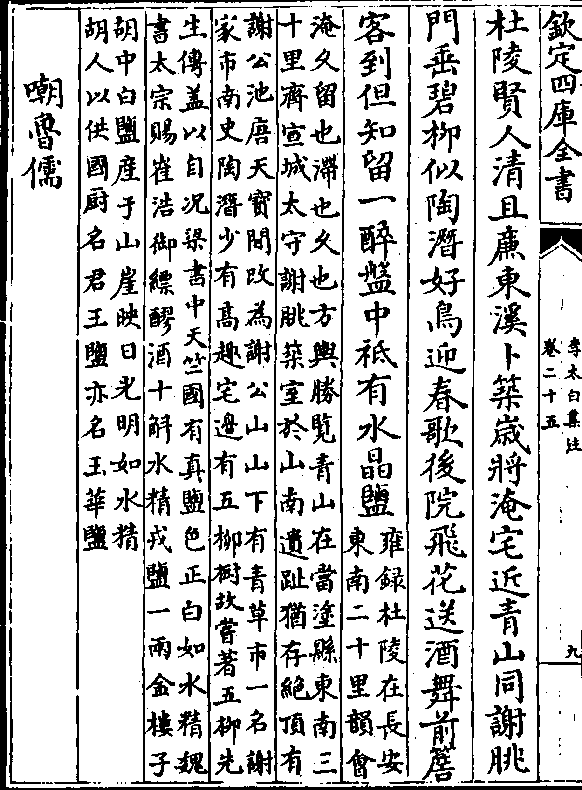 欽定四庫全書
李太白集注
卷二十五
九
杜陵賢人清且廉東溪卜築歲將淹宅近青山同謝朓
門垂碧柳似陶潛好鳥迎春歌後院飛花送酒舞前簷
客到但知留一醉盤中祗有水晶鹽
雍録杜陵在長安
東南二十里韻會
淹久留也滯也久也方輿勝覽青山在當塗縣東南三
十里齊宣城太守謝朓築室於山南遺趾猶存絶頂有
謝公池唐天寶間改為謝公山山下有青草市一名謝
家市南史陶潛少有高趣宅邊有五柳樹故嘗著五柳先
生傳盖以自况梁書中天竺國有真鹽色正白如水精魏
書太宗賜崔浩御縹醪酒十斛水精戎鹽一兩金樓子
胡中白鹽産于山崖映日光明如水精
胡人以供國厨名君王鹽亦名玉華鹽
嘲魯儒